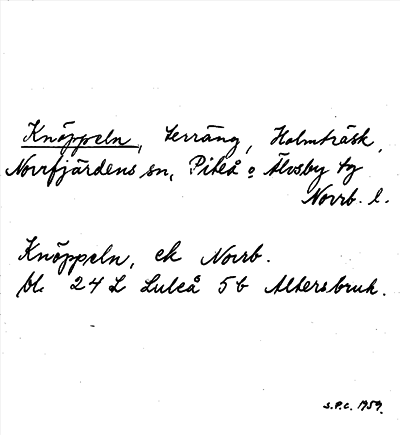 Knöppeln, terräng, Holmträsk,
Norrfjärdens sn, Piteå o Älvsby tg
Norrb. l.
Knöppeln, ek Norrb.
bl. 24 L Luleå 5b Altersbruk.
S.P.C. 1959.